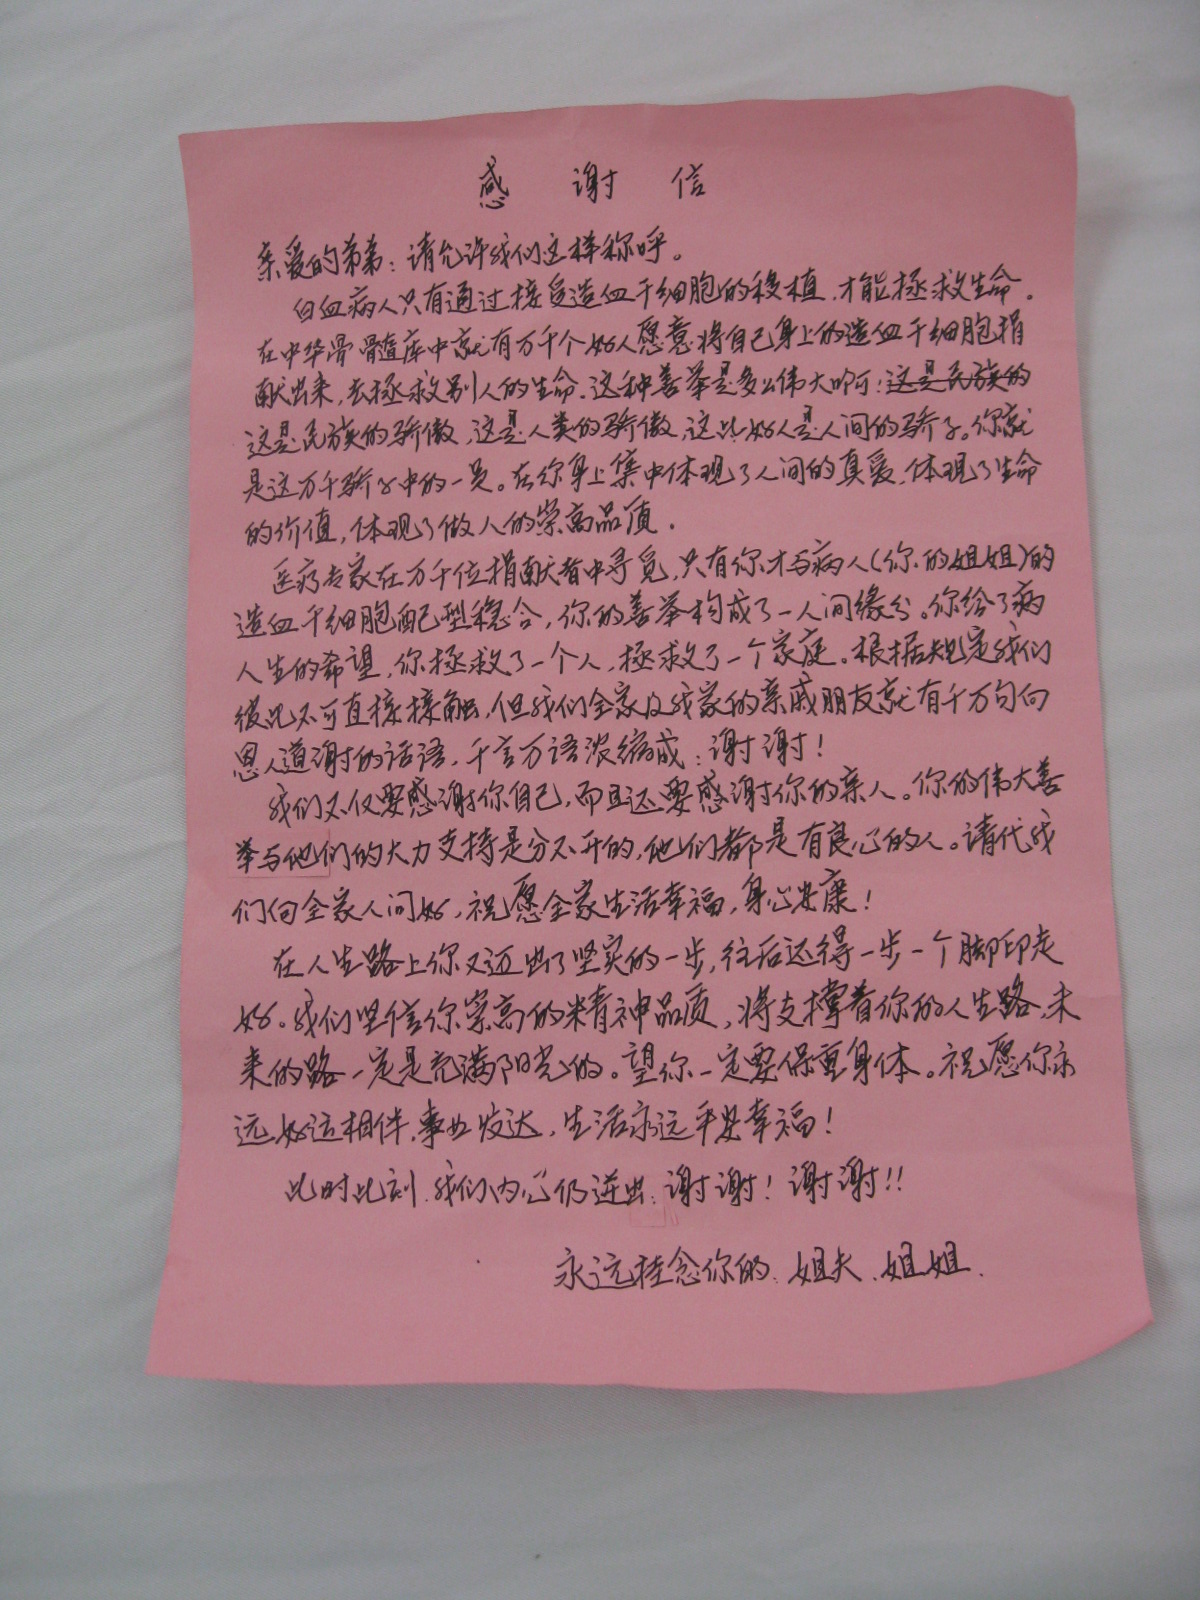 感谢信
亲爱的弟弟：请允许我们这样称呼。
白血病人只有通过接受造血干细胞的移植，才能拯救生命。
在中华骨髓库中就有万千个好人愿意将自己身上的造血干细胞捐
献出来，去拯救别人的生命。这种善举是多么伟大啊！这是民族的
这是民族的骄傲，这是人类的骄傲，这些好人是人间的骄子。你就
是这万千骄子中的一员。在你身上集中体现了人间的真爱，体现了生命
的价值，体现了做人的崇高品质。
医疗专家在万千位捐献者中寻觅，只有你才与病人（你的姐姐）的
造血干细胞配型稳合，你的善举构成了一人间缘分。你给了病
人生的希望，你拯救了一个人，拯救了一个家庭。根据规定我们
彼此不可直接接触，但我们全家及我家的亲戚朋友就有千万句向
恩人道谢的话语，千言万语浓缩成：谢谢！
我们不仅要感谢你自己，而且还要感谢你的亲人。你的伟大善
举与他们的大力支持是分不开的，他们都是有良心的人。请代我
们向全家人问好，祝愿全家生活幸福，身心安康！
在人生路上你又迈出了坚实的一步，往后还得一步一个脚印走
好。我们坚信你崇高的精神品质，将支撑着你的人生路，未
来的路一定是充满阳光的。望你一定要保重身体。祝愿你永
远好运相伴，事业发达，生活永远平安幸福！
此时此刻，我们内心仍迸出：谢谢！谢谢！！
永远挂念你的：姐夫、姐姐.